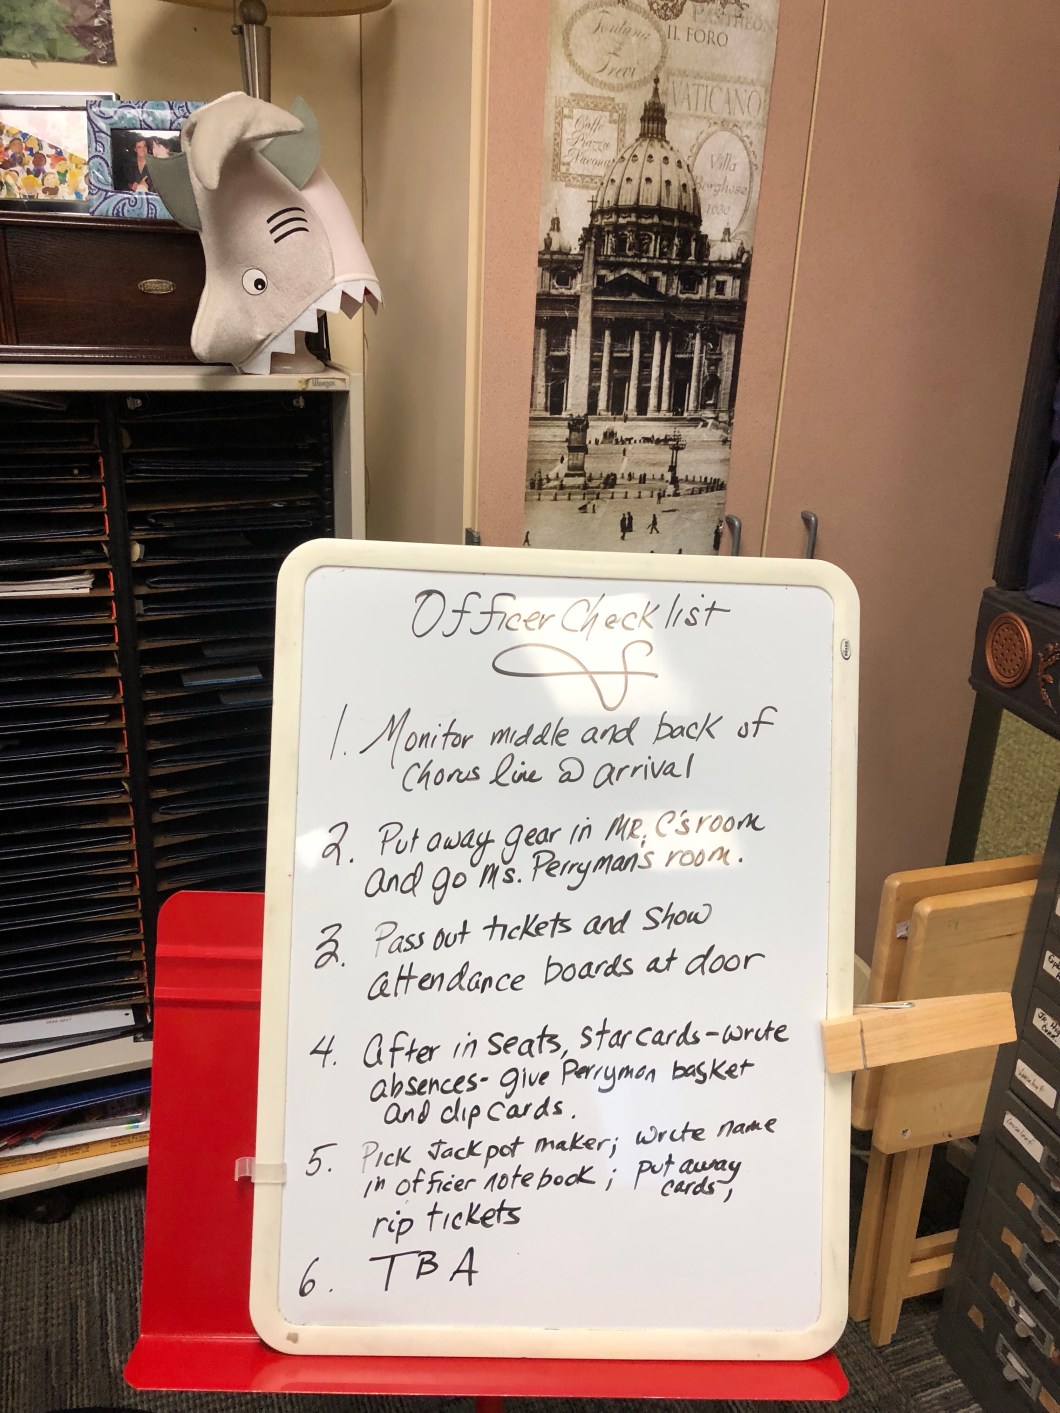 Fontana
di
Trevi
PANTHEON
IL FORO
VATICANO
Caffe
Piazza
Navona
Villa
Borghese
Officer Checklist
1. Monitor middle and back of
Chorus line @ arrival
2. Put away gear in MR. C's room
and go Ms. Perryman's room.
3. Pass out tickets and show
attendance boards at door
4. After in seats, star cards - write
absences - give Perryman basket
and clip cards.
5. Pick Jackpot maker; write name
in officer notebook; put away
cards,
rip tickets
6. TBA
Wenger